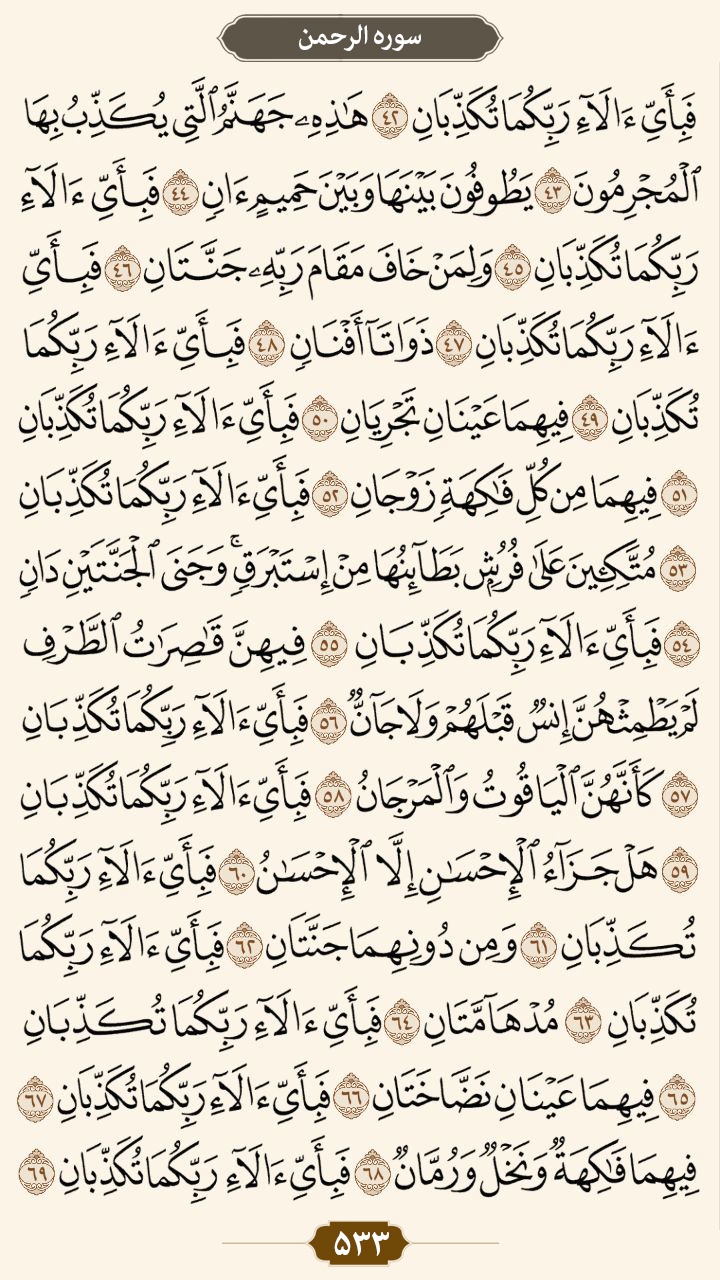 سوره الرحمن
فَبِأَيِّ ءَالَآءِ رَبِّكُمَا تُكَذِّبَانِ ٤٢ هَـٰذِهِۦ جَهَنَّمُ ٱلَّتِي يُكَذِّبُ بِهَا
ٱلْمُجْرِمُونَ ٤٣ يَطُوفُونَ بَيْنَهَا وَبَيْنَ حَمِيمٍ ءَانٍ ٤٤ فَبِأَيِّ ءَالَآءِ
رَبِّكُمَا تُكَذِّبَانِ ٤٥ وَلِمَنْ خَافَ مَقَامَ رَبِّهِۦ جَنَّتَانِ ٤٦ فَبِأَيِّ
ءَالَآءِ رَبِّكُمَا تُكَذِّبَانِ ٤٧ ذَوَاتَآ أَفْنَانٍ ٤٨ فَبِأَيِّ ءَالَآءِ رَبِّكُمَا
تُكَذِّبَانِ ٤٩ فِيهِمَا عَيْنَانِ تَجْرِيَانِ ٥٠ فَبِأَيِّ ءَالَآءِ رَبِّكُمَا تُكَذِّبَانِ
٥١ فِيهِمَا مِن كُلِّ فَـٰكِهَةٍ زَوْجَانِ ٥٢ فَبِأَيِّ ءَالَآءِ رَبِّكُمَا تُكَذِّبَانِ
٥٣ مُتَّكِـِٔينَ عَلَىٰ فُرُشٍۭ بَطَآئِنُهَا مِنْ إِسْتَبْرَقٍۚ وَجَنَى ٱلْجَنَّتَيْنِ دَانٍ
٥٤ فَبِأَيِّ ءَالَآءِ رَبِّكُمَا تُكَذِّبَانِ ٥٥ فِيهِنَّ قَـٰصِرَٰتُ ٱلطَّرْفِ
لَمْ يَطْمِثْهُنَّ إِنسٌ قَبْلَهُمْ وَلَا جَآنٌّ ٥٦ فَبِأَيِّ ءَالَآءِ رَبِّكُمَا تُكَذِّبَانِ
٥٧ كَأَنَّهُنَّ ٱلْيَاقُوتُ وَٱلْمَرْجَانُ ٥٨ فَبِأَيِّ ءَالَآءِ رَبِّكُمَا تُكَذِّبَانِ
٥٩ هَلْ جَزَآءُ ٱلْإِحْسَـٰنِ إِلَّا ٱلْإِحْسَـٰنُ ٦٠ فَبِأَيِّ ءَالَآءِ رَبِّكُمَا
تُكَذِّبَانِ ٦١ وَمِن دُونِهِمَا جَنَّتَانِ ٦٢ فَبِأَيِّ ءَالَآءِ رَبِّكُمَا
تُكَذِّبَانِ ٦٣ مُدْهَآمَّتَانِ ٦٤ فَبِأَيِّ ءَالَآءِ رَبِّكُمَا تُكَذِّبَانِ
٦٥ فِيهِمَا عَيْنَانِ نَضَّاخَتَانِ ٦٦ فَبِأَيِّ ءَالَآءِ رَبِّكُمَا تُكَذِّبَانِ ٦٧
فِيهِمَا فَـٰكِهَةٌ وَنَخْلٌ وَرُمَّانٌ ٦٨ فَبِأَيِّ ءَالَآءِ رَبِّكُمَا تُكَذِّبَانِ ٦٩
۵۳۳